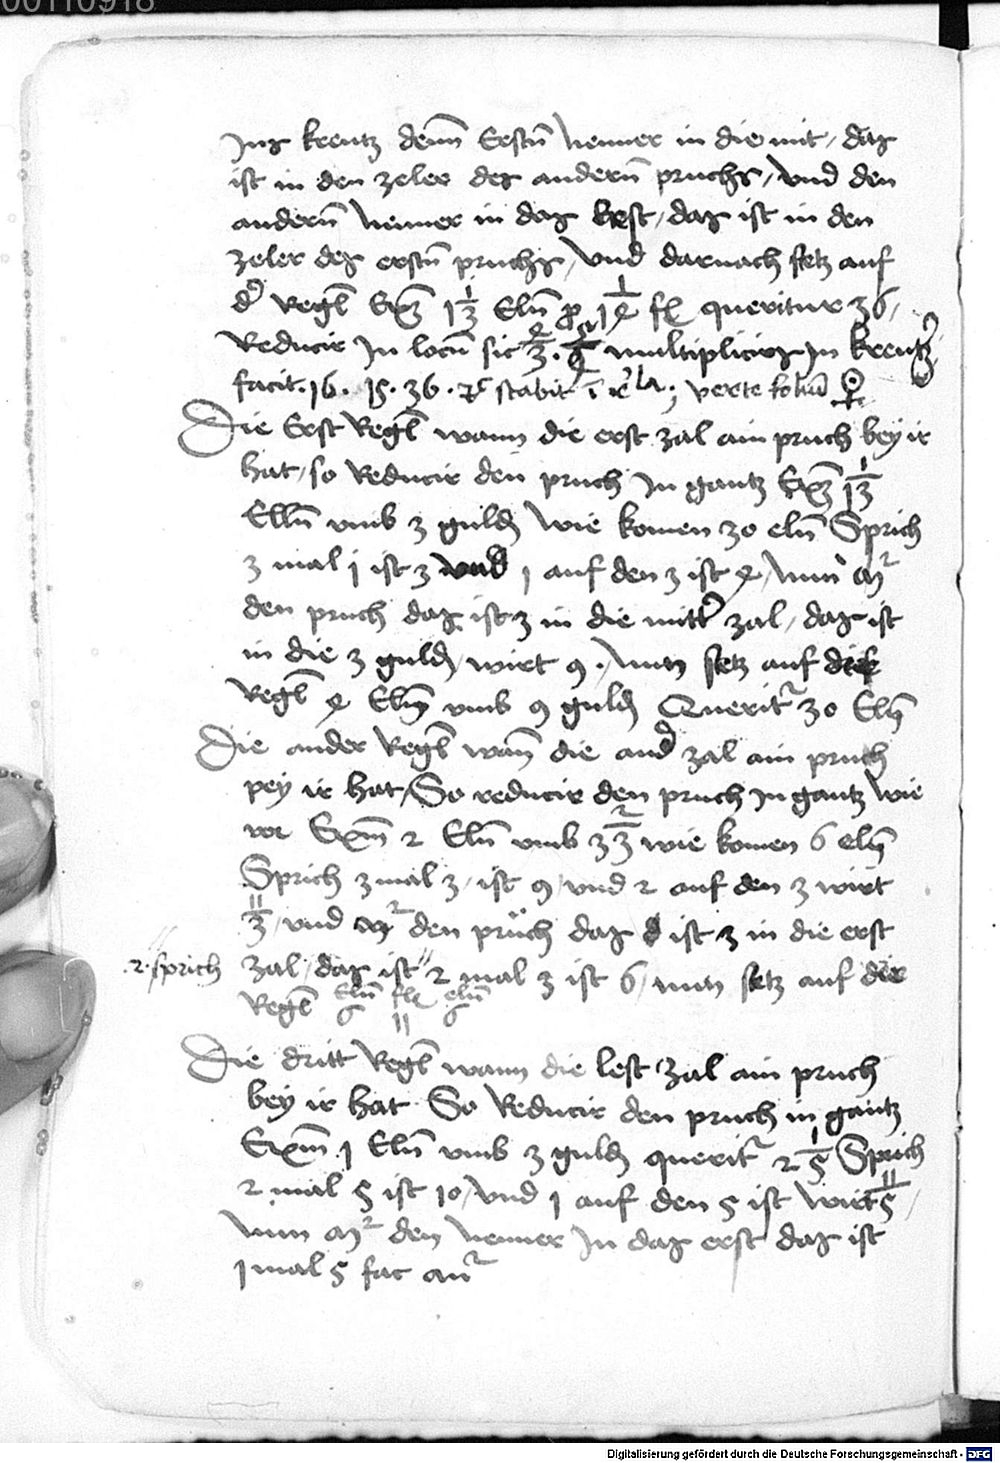 00110918
Ins kreutz denn Ersten Nenner in die mit / das
ist in den zeler des andern pruchs / Vnd den
andern Nenner in das lest / das ist in den
zeler des ersten pruchs / Vnd darnach setz auf
Regl Exm 1 1/3 Eln 1 1/4 fl queritur 36
Reducir In locum sic 4/3 . 5/4 multiplicirs In kreutz
facit . 16 . 15 . 36 . stabit verte folium
Die Erst Regl wann die erst zal ain pruch bey ir
hat / so Reducir den pruch In gantz Exm 1 1/3
Elln vmb 3 guldn Wie komen 30 eln Sprich
3 mal 1 ist 3 vnd 1 auf den 3 ist 4 / Nun
den pruch das ist 3 in die mitter zal / das ist
in die 3 guldn / wirt 9 . Nun setz auf die
Regl 4 Eln vmb 9 guldn Querit 30 Eln
Die ander Regl wann die ander zal ain pruch
pey ir hat / So reducir den pruch In gantz Wie
vor Exm 2 Eln vmb 3 2/3 wie komen 6 eln
Sprich 3 mal 3 / ist 9 / vnd 2 auf den 3 wirt
11/3 / vnd den prüch das ist 3 in die erst
.2. sprich zal / das ist 2 mal 3 ist 6 / nun setz auf die
Regl Eln 6 fl 11 eln 6
Die dritt Regl wann die lest zal ain pruch
bey ir hat So Reducir den pruch in gantz
Exm 1 Eln vmb 3 guldn querit 2 1/5 Sprich
2 mal 5 ist 10 / Vnd 1 auf den 5 ist Wirt 11/5 /
Nun den Nenner In das erst das ist
1 mal 5 fac
Digitalisierung gefördert durch die Deutsche Forschungsgemeinschaft - DFG